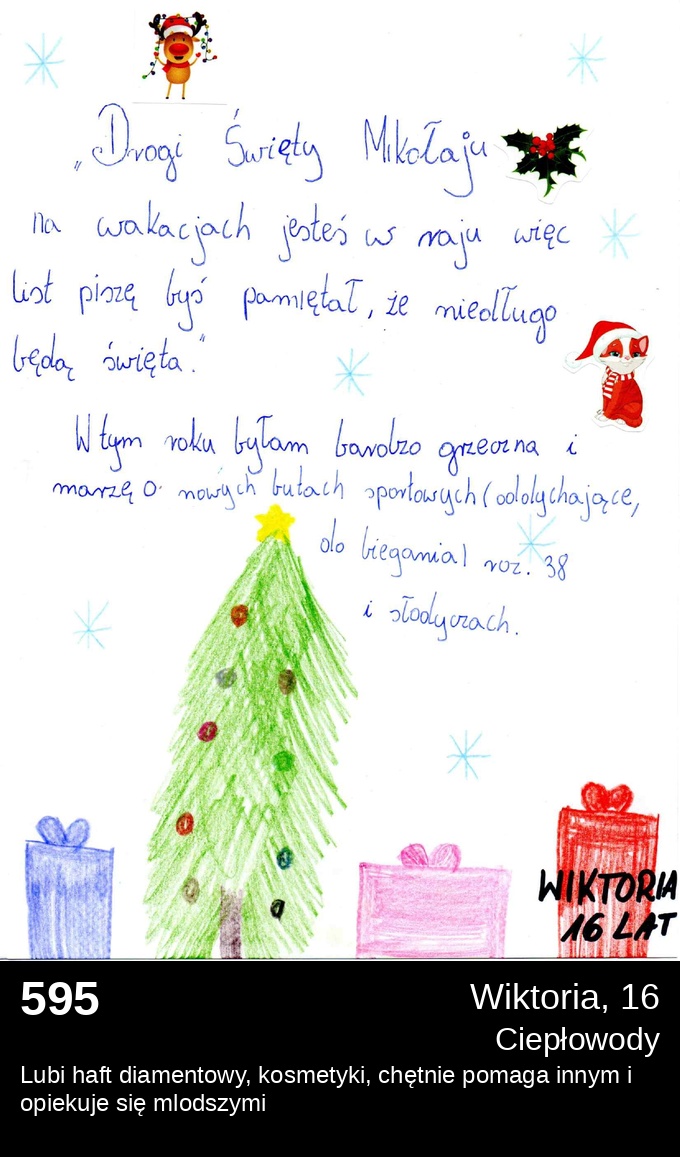 „Drogi Święty Mikołaju
na wakacjach jesteś w raju więc
list piszę byś pamiętał, że niedługo
będą święta."
W tym roku byłam bardzo grzeczna i
marzę o nowych butach sportowych (oddychające,
do biegania) roz. 38
i słodyczach.
WIKTORIA
16 LAT
595
Wiktoria, 16
Ciepłowody
Lubi haft diamentowy, kosmetyki, chętnie pomaga innym i
opiekuje się mlodszymi